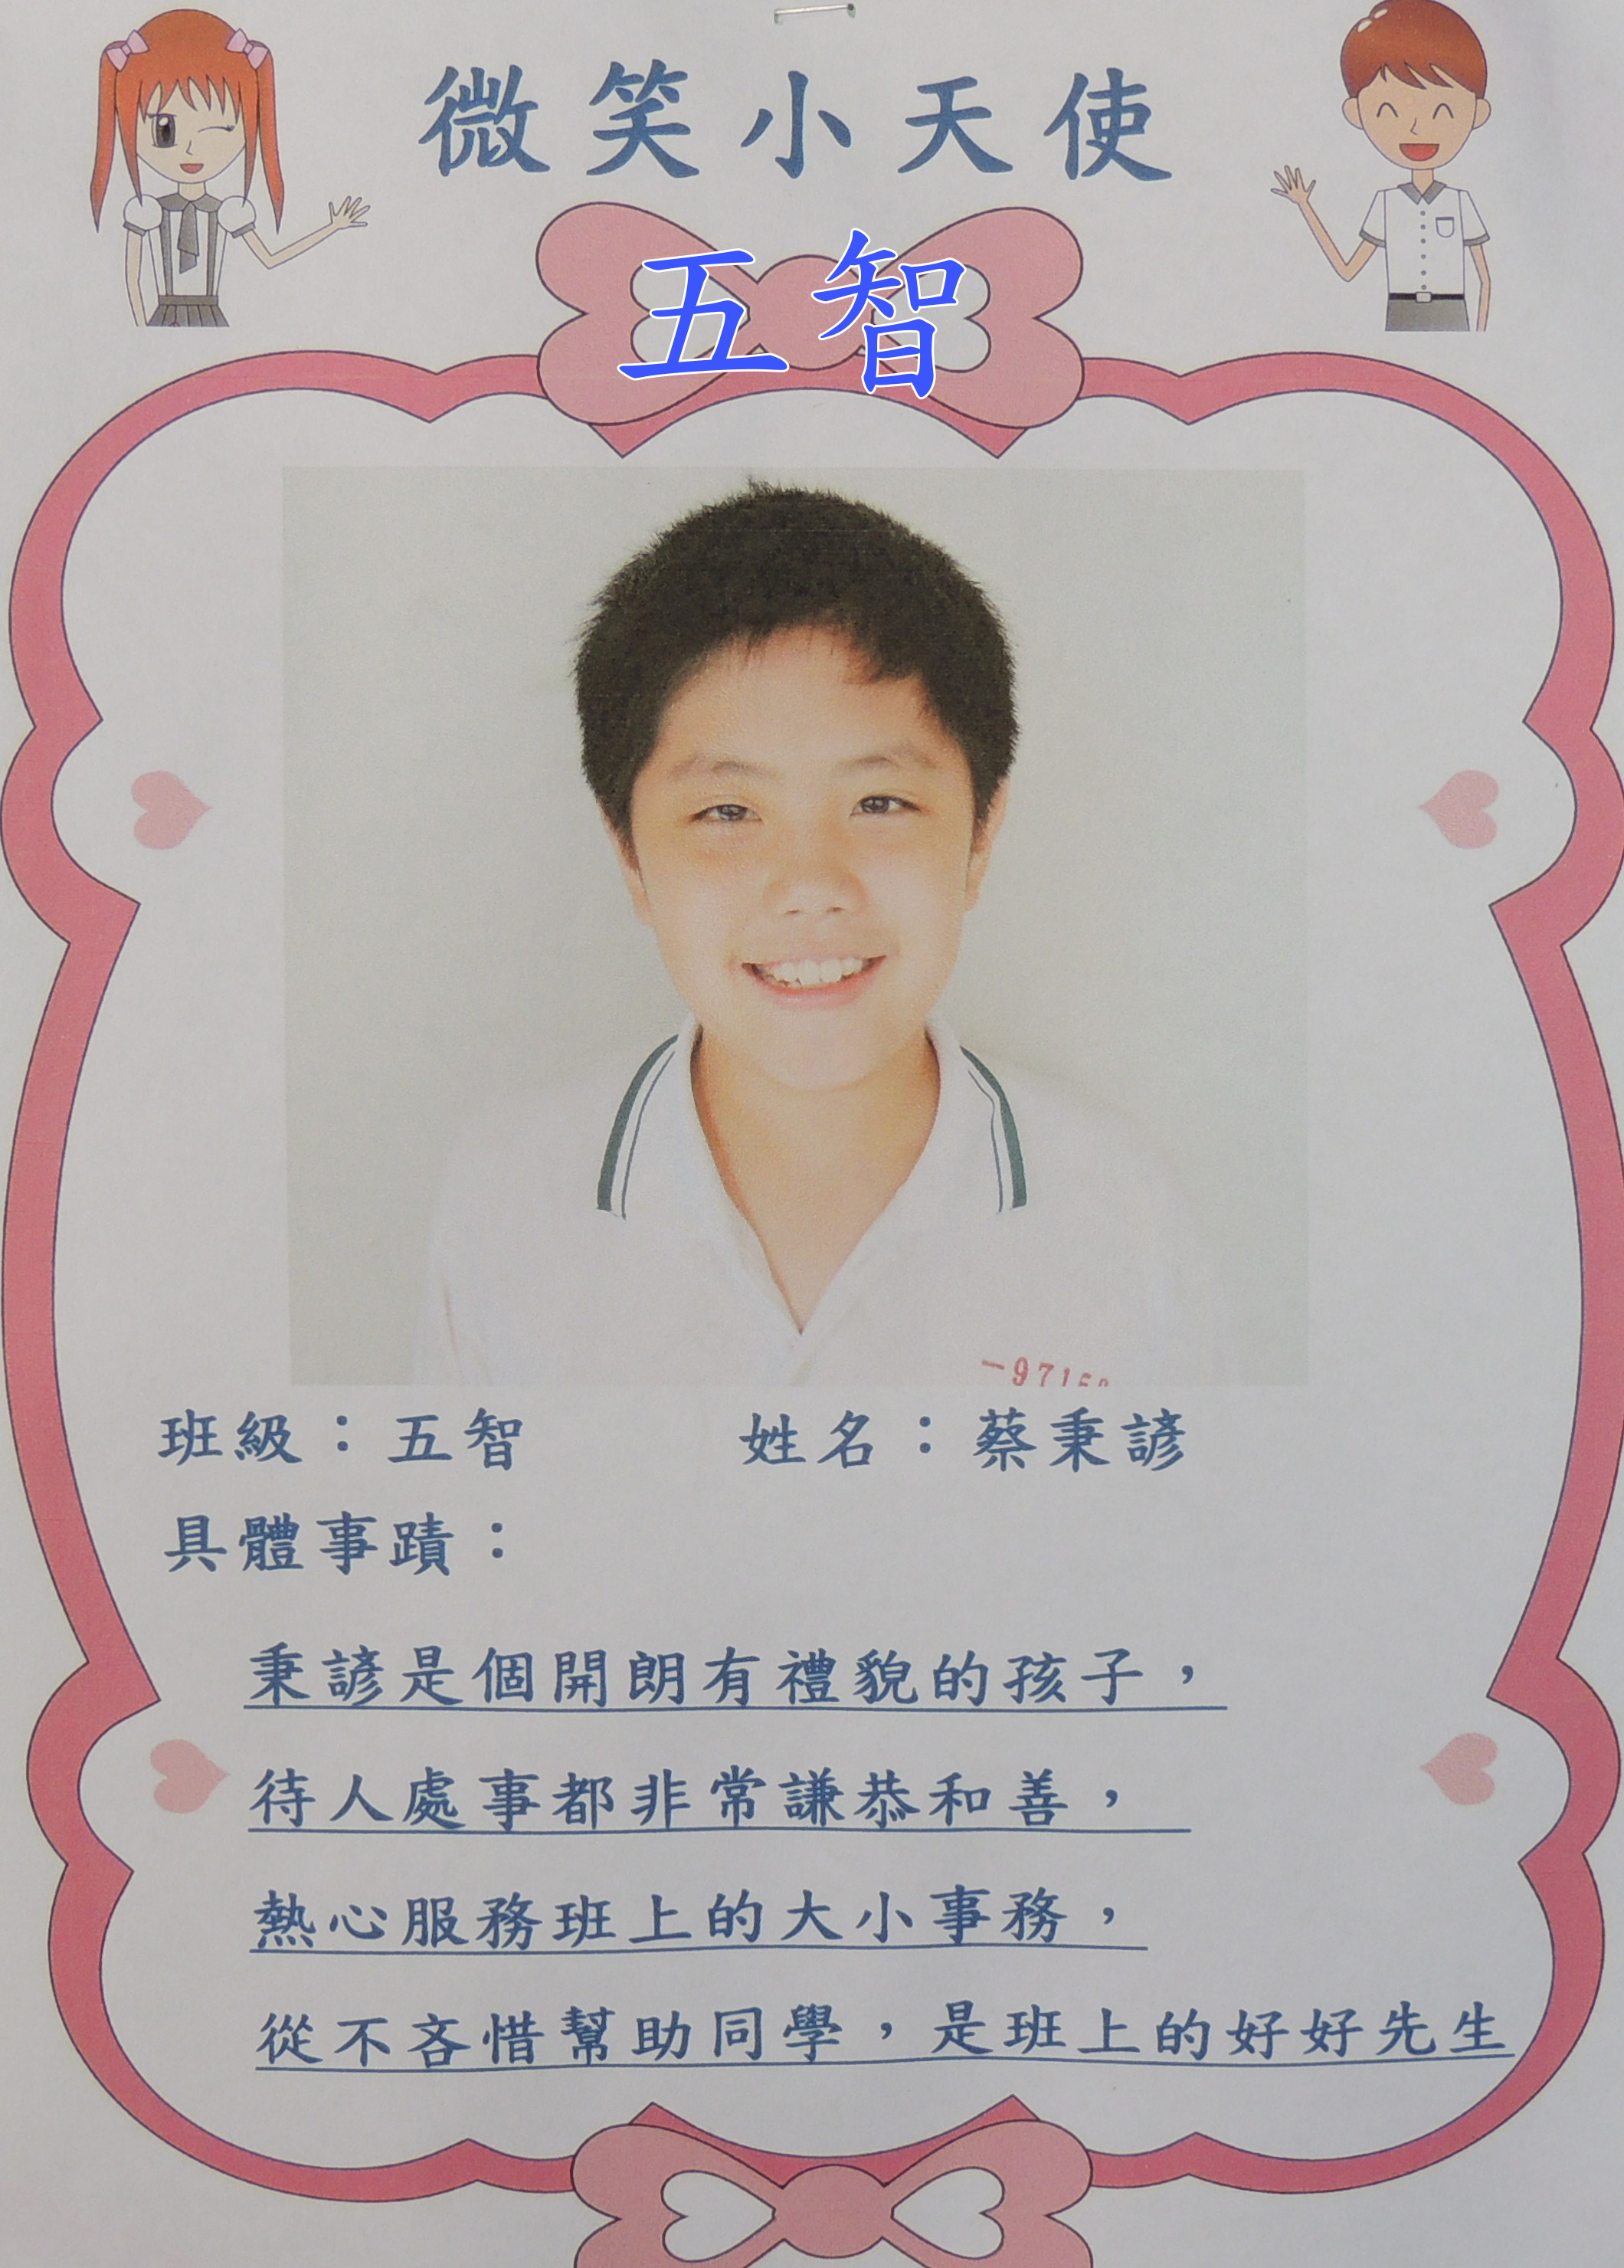 微笑小天使
五智
班級：五智　姓名：蔡秉諺
具體事蹟：
秉諺是個開朗有禮貌的孩子，
待人處事都非常謙恭和善，
熱心服務班上的大小事務，
從不吝惜幫助同學，是班上的好好先生